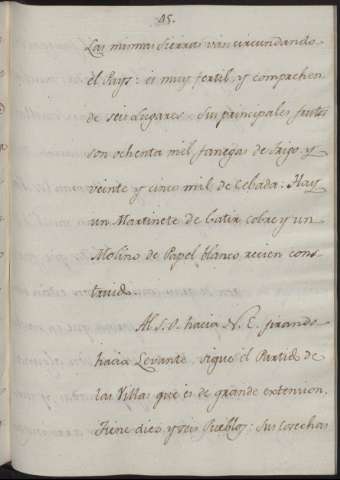 45.
Las mismas Sierras van circundando
el Pays: es muy fertil, y comprehen
de seis Lugares. Sus principales frutos
son ochenta mil fanegas de Trigo, y
veinte y cinco mil de Cebada: Hay
un Martinete de batir cobre y un
Molino de Papel blanco recien cons-
truido.
Al S.O. hacia N.E. girando
hacia Levante sigue el Partido de
las Villas que es de grande extension.
Tiene diez y seis Pueblos: Sus cosechas